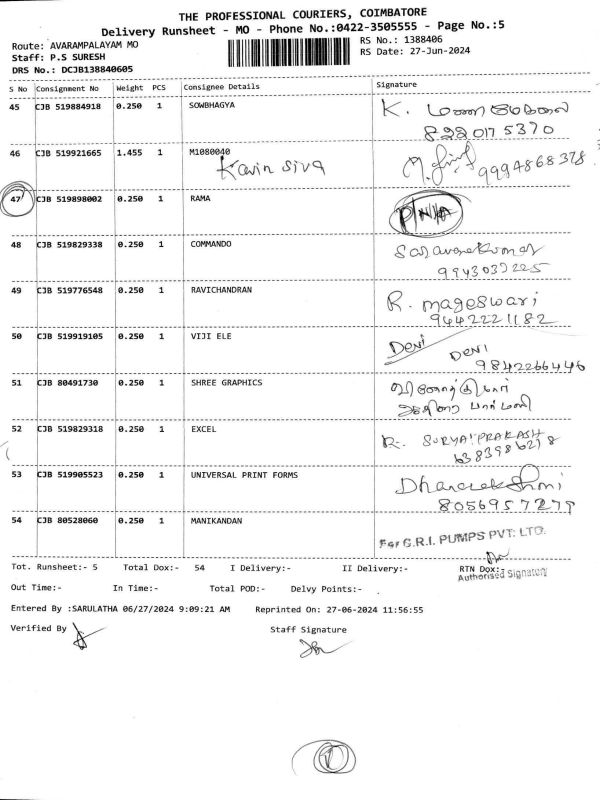 THE PROFESSIONAL COURIERS, COIMBATORE
Delivery Runsheet - MO - Phone No.:0422-3505555 - Page No.:5
Route: AVARAMPALAYAM MO
RS No.: 1388406
Staff: P.S SURESH
RS Date: 27-Jun-2024
DRS No.: DCJB138840605
S No Consignment No Weight PCS Consignee Details Signature
45 CJB 519884918 0.250 1 SOWBHAGYA K. மணிமேகலை
8220175370
46 CJB 519921665 1.455 1 M1080040
Kavin siva 9994868378
47 CJB 519898002 0.250 1 RAMA P/N/A
48 CJB 519829338 0.250 1 COMMANDO Saravanakumar
9943037225
49 CJB 519776548 0.250 1 RAVICHANDRAN R. mageswari
9442221182
50 CJB 519919105 0.250 1 VIJI ELE Devi
DEVI
9842266446
51 CJB 80491730 0.250 1 SHREE GRAPHICS
52 CJB 519829318 0.250 1 EXCEL R. SURYA PRAKASH
6383986278
53 CJB 519905523 0.250 1 UNIVERSAL PRINT FORMS Dhanalakshmi
8056957279
54 CJB 80528060 0.250 1 MANIKANDAN For G.R.I. PUMPS PVT. LTD.
Tot. Runsheet:- 5 Total Dox:- 54 I Delivery:- II Delivery:- RTN Dox:-
Authorised Signatory
Out Time:- In Time:- Total POD:- Delvy Points:-
Entered By :SARULATHA 06/27/2024 9:09:21 AM Reprinted On: 27-06-2024 11:56:55
Verified By Staff Signature
1